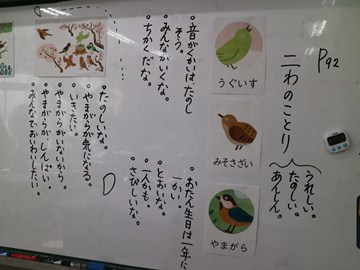 P92
二わのことり
うれしい。
たのしい。
あんしん。
うぐいす
みそさざい
やまがら
・音がくかいはたのし
そう。
・みんながいくな。
・ちかくだな。
・おたん生日は一年に
一かい。
・とおいな。
・一人かも。
・さびしいな。
・たのしいな。
・やまがらが気になる。
・いきたい。
・やまがらがいないから。
・やまがらがしんぱい。
・みんなでおいわいしたい。